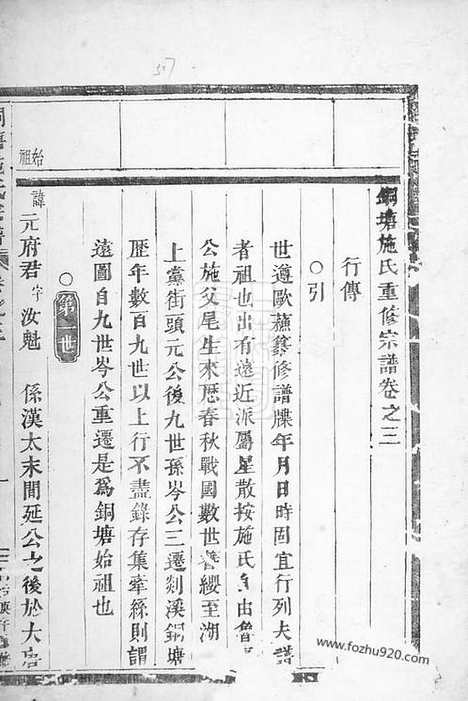 57
銅塘施氏重修宗譜卷之三
行傳
○引
世遵歐蘇纂修譜牒年月日時固宜行列夫譜
者祖也出有遠近派屬星散按施氏由魯
公施父尾生來歷春秋戰國數世簪纓至湖
上黨街頭元公後九世孫岑公三遷剡溪銅塘
歷年數百九世以上行不盡錄存集牽綠則謂
遠圖自九世岑公重遷是為銅塘始祖也
○
第一世
始祖
諱元府君字汝魁 係漢太末間延公之後於大唐
www.fozhu920.com